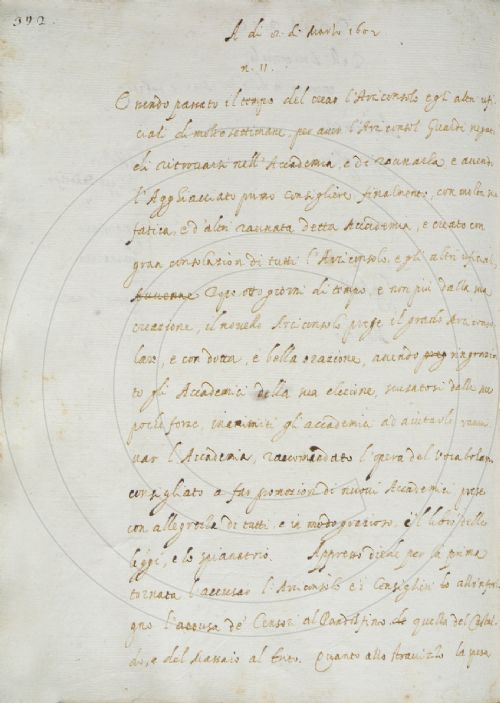 392.
A di 8 di Marzo 1602
n. 11.
Essendo passato il tempo del crear l'Arciconsolo e gli altri ufi-
ciali di molte settimane, per aver l'Arciconsol Gualdi negato
di ritrovarsi nell'Accademia, e di raunarla e avendo
l'Agghiacciato primo consigliere finalmente, con molta sua
fatica, e d'altri raunata detta Accademia, e creato con
gran consolazion di tutti l'Arciconsolo, e gli altri uficiali,
Avvenne Dopo otto giorni di tempo, e non più dalla sua
creazione, il novello Arciconsolo prese il grado Arciconso-
lare, e con dotta, e bella orazione, avendo preg ringrazia-
to gli Accademici della sua elezione, scusatosi delle sue
poche forze, inanimiti gli accademici ad aiutarlo raunar
l'Accademia, raccomandato l'opera del vocabolario,
consigliato a far promozion di nuovi Accademici prese
con allegrezza di tutti e in modo grazioso, il libro delle
leggi, e lo spianatoio. Appresso diede per la prima
tornata l'accusar l'Arciconsolo e i Consiglieri lo
l'accusa de' Censori al Pandolfino, e quella del Castal-
do, e del Massaio al Trito. Quanto allo stravizzo la spesa